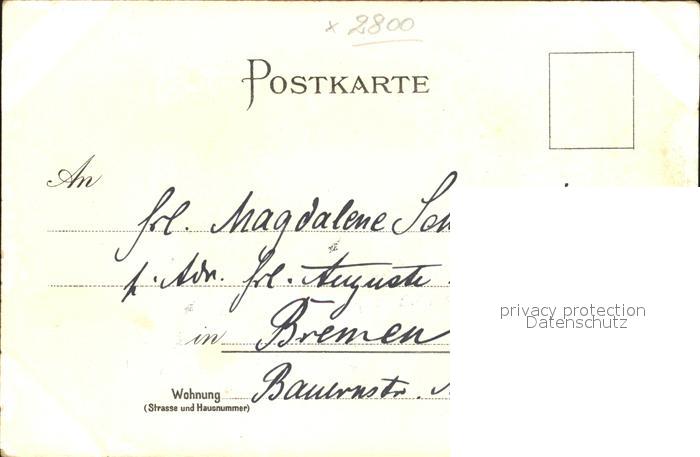 x 2800
POSTKARTE
An
Frl. Magdalene Sch
p. Adr. Frl. Auguste
in Bremen
Wohnung Bauernstr.
(Strasse und Hausnummer)
privacy protection
Datenschutz